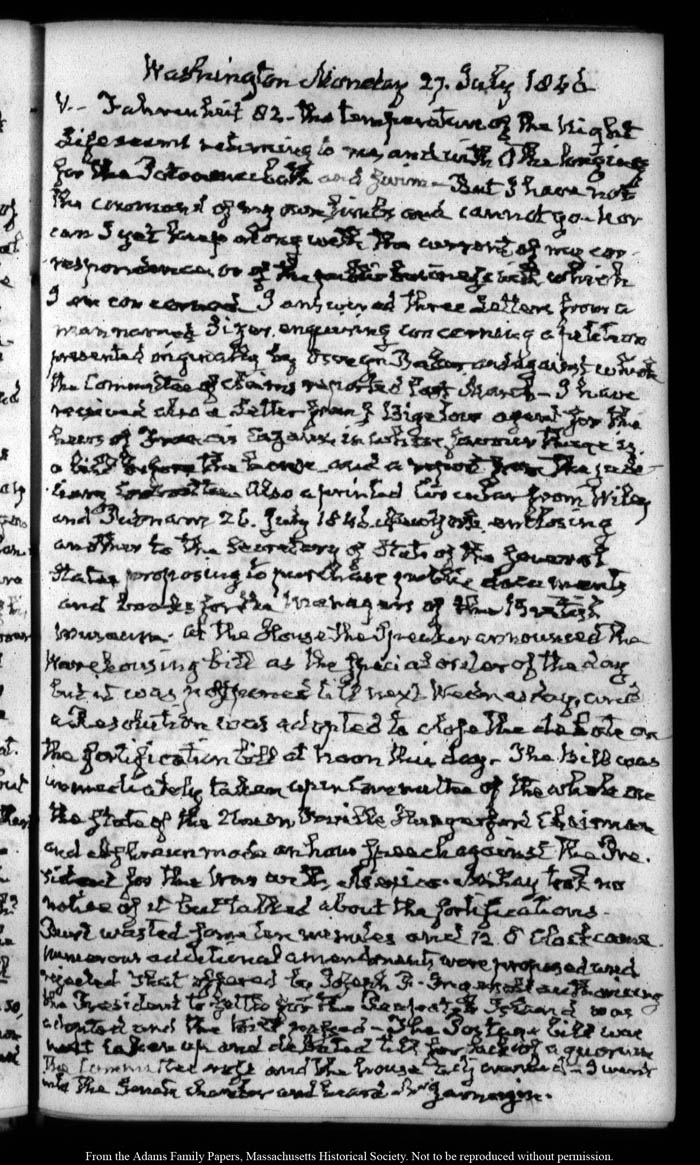 Washington Monday 27. July 1846
V.- Fahrenheit 82 - the temperature of the night
Life seems returning to me, and with it the longing
for the Potomac bath and swim - But I have not
the command of my own limbs and cannot go - nor
can I yet keep along with the current of my cor-
respondence, or of the public business with which
I am concerned. I answered three Letters from a
man named Sizer, enquiring concerning a petition
presented originally by Baker and against which
the Committee of claims reported last March - I have
received also a Letter from Bigelow agent for the
heirs of Francis Cazeau, in whose favour there is
a bill before the house and a report from the judi-
ciary Committee. Also a printed Circular from Wiley
and Putnam 26. July 1846. New York, enclosing
another to the Secretary of State of the several
States proposing to purchase public documents
and books for the Managers of the British
Museum. At the House the Speaker announced the
Warehousing bill as the special order of the day
but it was postponed till next Wednesday, and
a Resolution was adopted to close the debate on
the fortification bill at noon this day - The bill was
immediately taken up in Committee of the whole on
the state of the Union Orville Hungerford Chairman
and made an hour speech against the Pre-
sident for the War with Mexico. McKay took no
notice of it but talked about the fortifications -
Burt wasted some ten minutes and 12 O'Clock came.
numerous additional amendments were proposed and
rejected that offered by Joseph R. Ingersoll authorizing
the President to settle for the Pea patch Island was
adopted and the bill passed - The Postage bill was
next taken up and debated till for lack of a quorum
the Committee rose and the house adjourned - I went
into the Senate chamber and heard Mr Jarnagin.
From the Adams Family Papers, Massachusetts Historical Society. Not to be reproduced without permission.